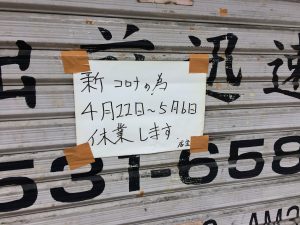 出前迅速
新コロナの為
4月22日～5月6日
休業します
531-658
AM